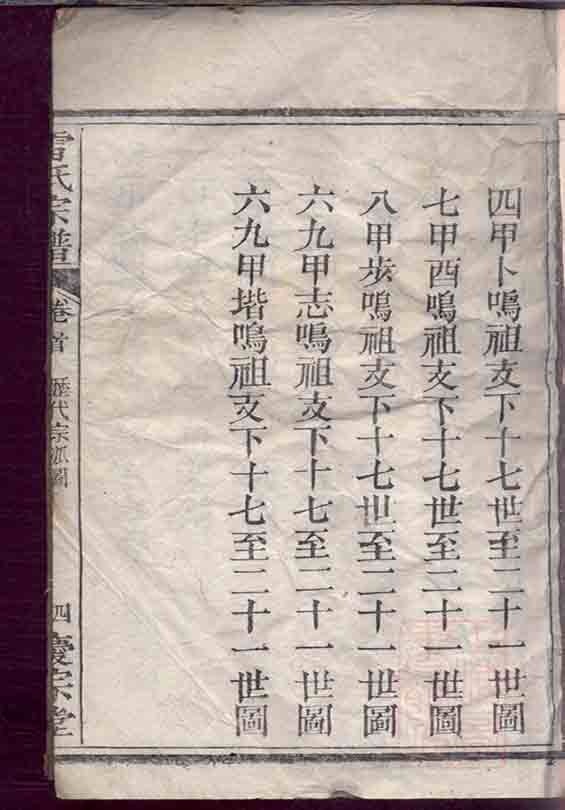 四甲卜鳴祖支下十七世至二十一世圖
七甲酉鳴祖支下十七世至二十一世圖
八甲步鳴祖支下十七世至二十一世圖
六九甲志鳴祖支下十七至二十一世圖
六九甲堦鳴祖支下十七至二十一世圖
氏宗譜
卷首 歷代宗派圖
四 慶宗堂